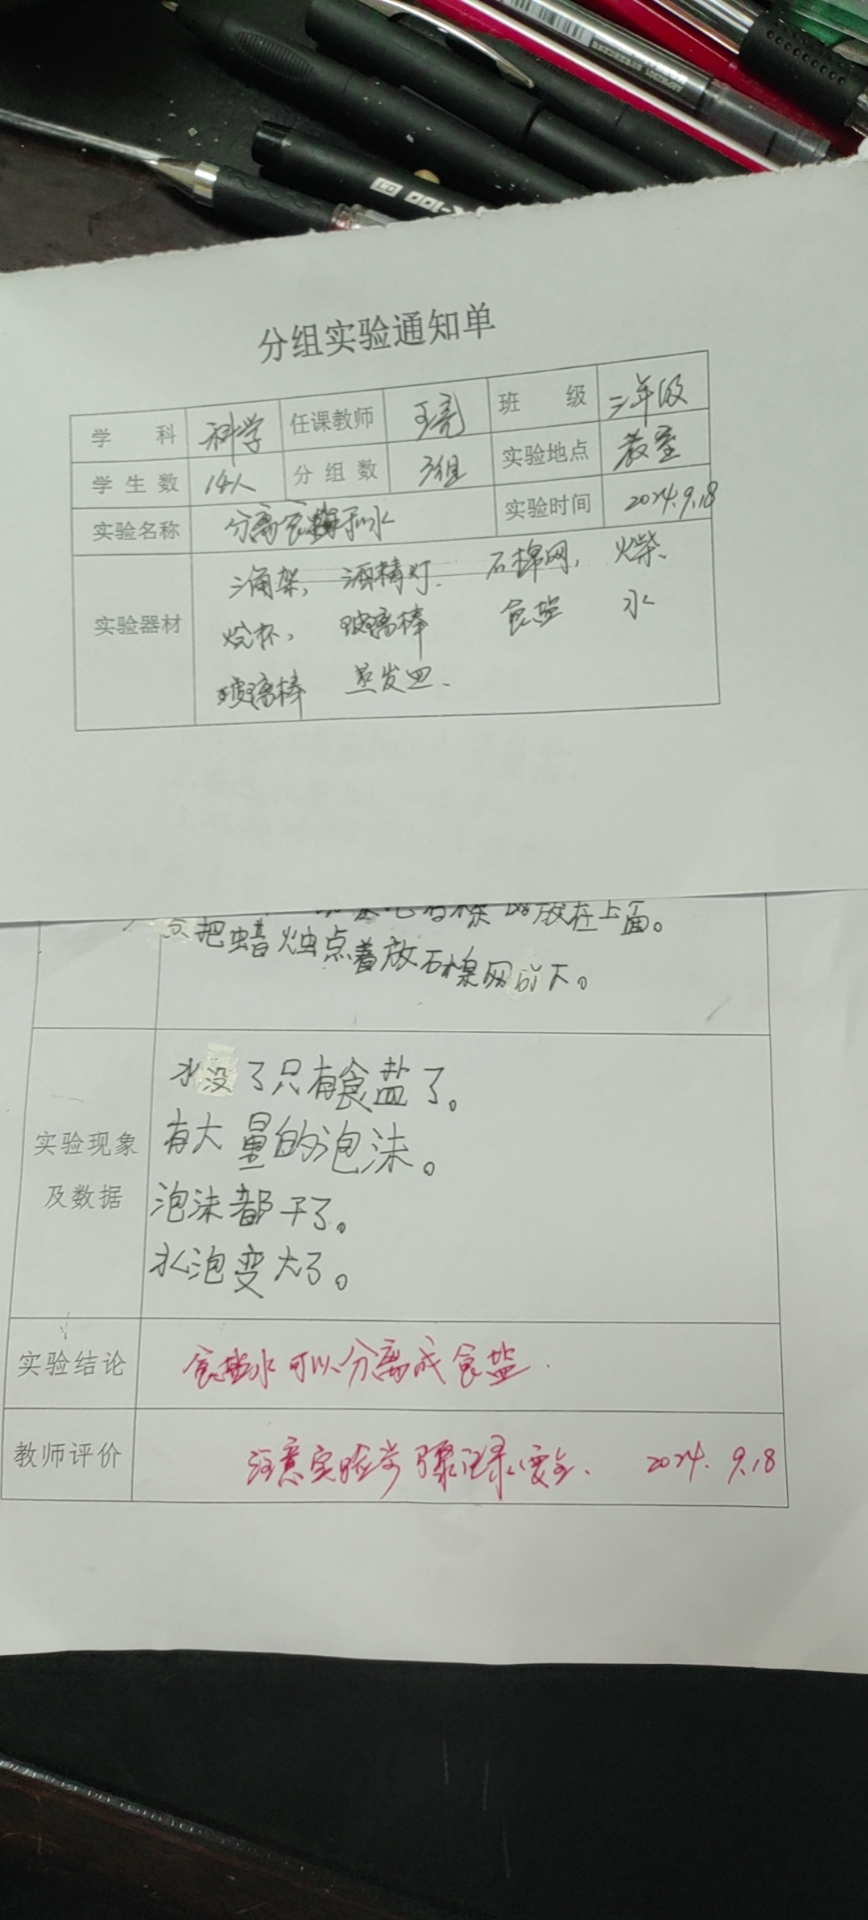 分组实验通知单
学 科 科学 任课教师 王亮 班 级 三年级
学生数 14人 分组数 3组 实验地点 教室
实验名称 分离食盐和水 实验时间 2024.9.18
实验器材 三角架, 酒精灯. 石棉网, 火柴.
烧杯, 玻璃棒 食盐 水
玻璃棒 蒸发皿.
放在上面。
把蜡烛点着放石棉网的下。
实验现象及数据
水没了只有食盐了。
有大量的泡沫。
泡沫都干了。
水泡变大了。
实验结论 食盐水可以分离成食盐.
教师评价 注意实验步骤记录,安全. 2024.9.18